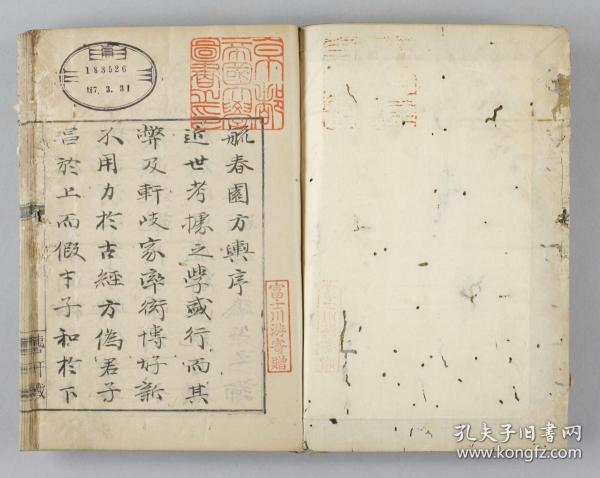 毓春園方輿序
近世考據之學盛行而其
弊及軒岐家率衒博好新
不用力於古經方偽君子
倡於上而假才子和於下
京都
帝國大學
圖書之印
富士川游寄贈
183526
大正7.3.31
孔夫子旧书网
www.kongfz.com